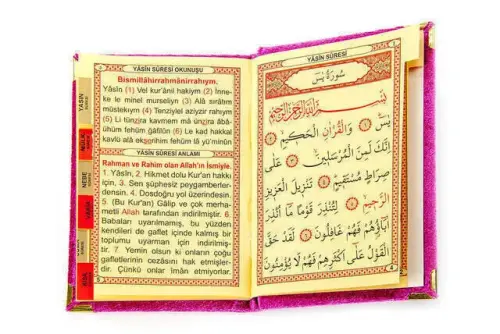 YÂSİN SÛRESİ OKUNUŞU
Bismillâhirrahmânirrahıym.
Yâsîn (1) Vel kur'ânil hakiym (2) İnne-
ke le minel murseliyn (3) Alâ sırâtım
müstekıym (4) Tenziylel aziyzir rahıym
(5) Li tünzira kavmem mâ ünzira âbâ-
ühüm fehüm ğâfilûn (6) Le kad hakkal
kavlü alâ ekserihim fehüm lâ yü'minûn
YÂSİN SÛRESİ ANLAMI
Rahman ve Rahim olan Allah'ın İsmiyle.
1. Yâsîn, 2. Hikmet dolu Kur'an hakkı
için, 3. Sen şüphesiz peygamberler-
densin. 4. Dosdoğru yol üzerindesin.
5. (Bu Kur'an) Gâlip ve çok merha-
metli Allah tarafından indirilmiştir. 6.
Babaları uyarılmamış, bu yüzden
kendileri de gaflet içinde kalmış bir
toplumu uyarman için indirilmiş-
tir. 7. Yemin olsun ki onların çoğu
gafletlerinin cezasını hak etmişler-
dir. Çünkü onlar iman etmiyorlar.
YASİN
MÜLK
NEBE
VAKIA
YÂSİN SÛRESİ
سُورَةُ يٰسٓ
بِسْمِ اللّٰهِ الرَّحْمٰنِ الرَّحِيمِ
يٰسٓ ﴿١﴾ وَالْقُرْاٰنِ الْحَكِيمِ ﴿٢﴾
اِنَّكَ لَمِنَ الْمُرْسَلِينَ ﴿٣﴾ عَلٰى
صِرَاطٍ مُسْتَقِيمٍ ﴿٤﴾ تَنْزِيلَ الْعَزِيزِ
الرَّحِيمِ ﴿٥﴾ لِتُنْذِرَ قَوْمًا مَٓا اُنْذِرَ
اٰبَٓاؤُهُمْ فَهُمْ غَافِلُونَ ﴿٦﴾ لَقَدْ حَقَّ
الْقَوْلُ عَلٰٓى اَكْثَرِهِمْ فَهُمْ لَا يُؤْمِنُونَ
4